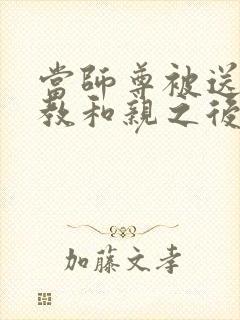 當師尊被送
教和親之後
加藤文孝